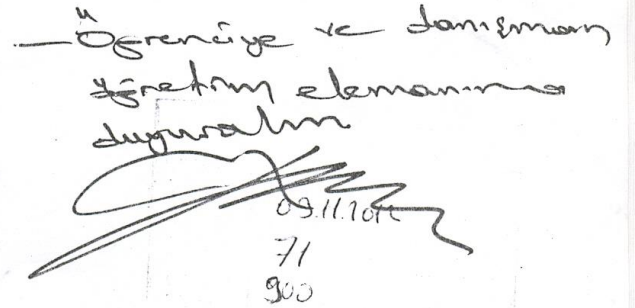 — Öğrenciye ve danışman
öğretim elemanına
duyuralım
09.11.2012
71
900